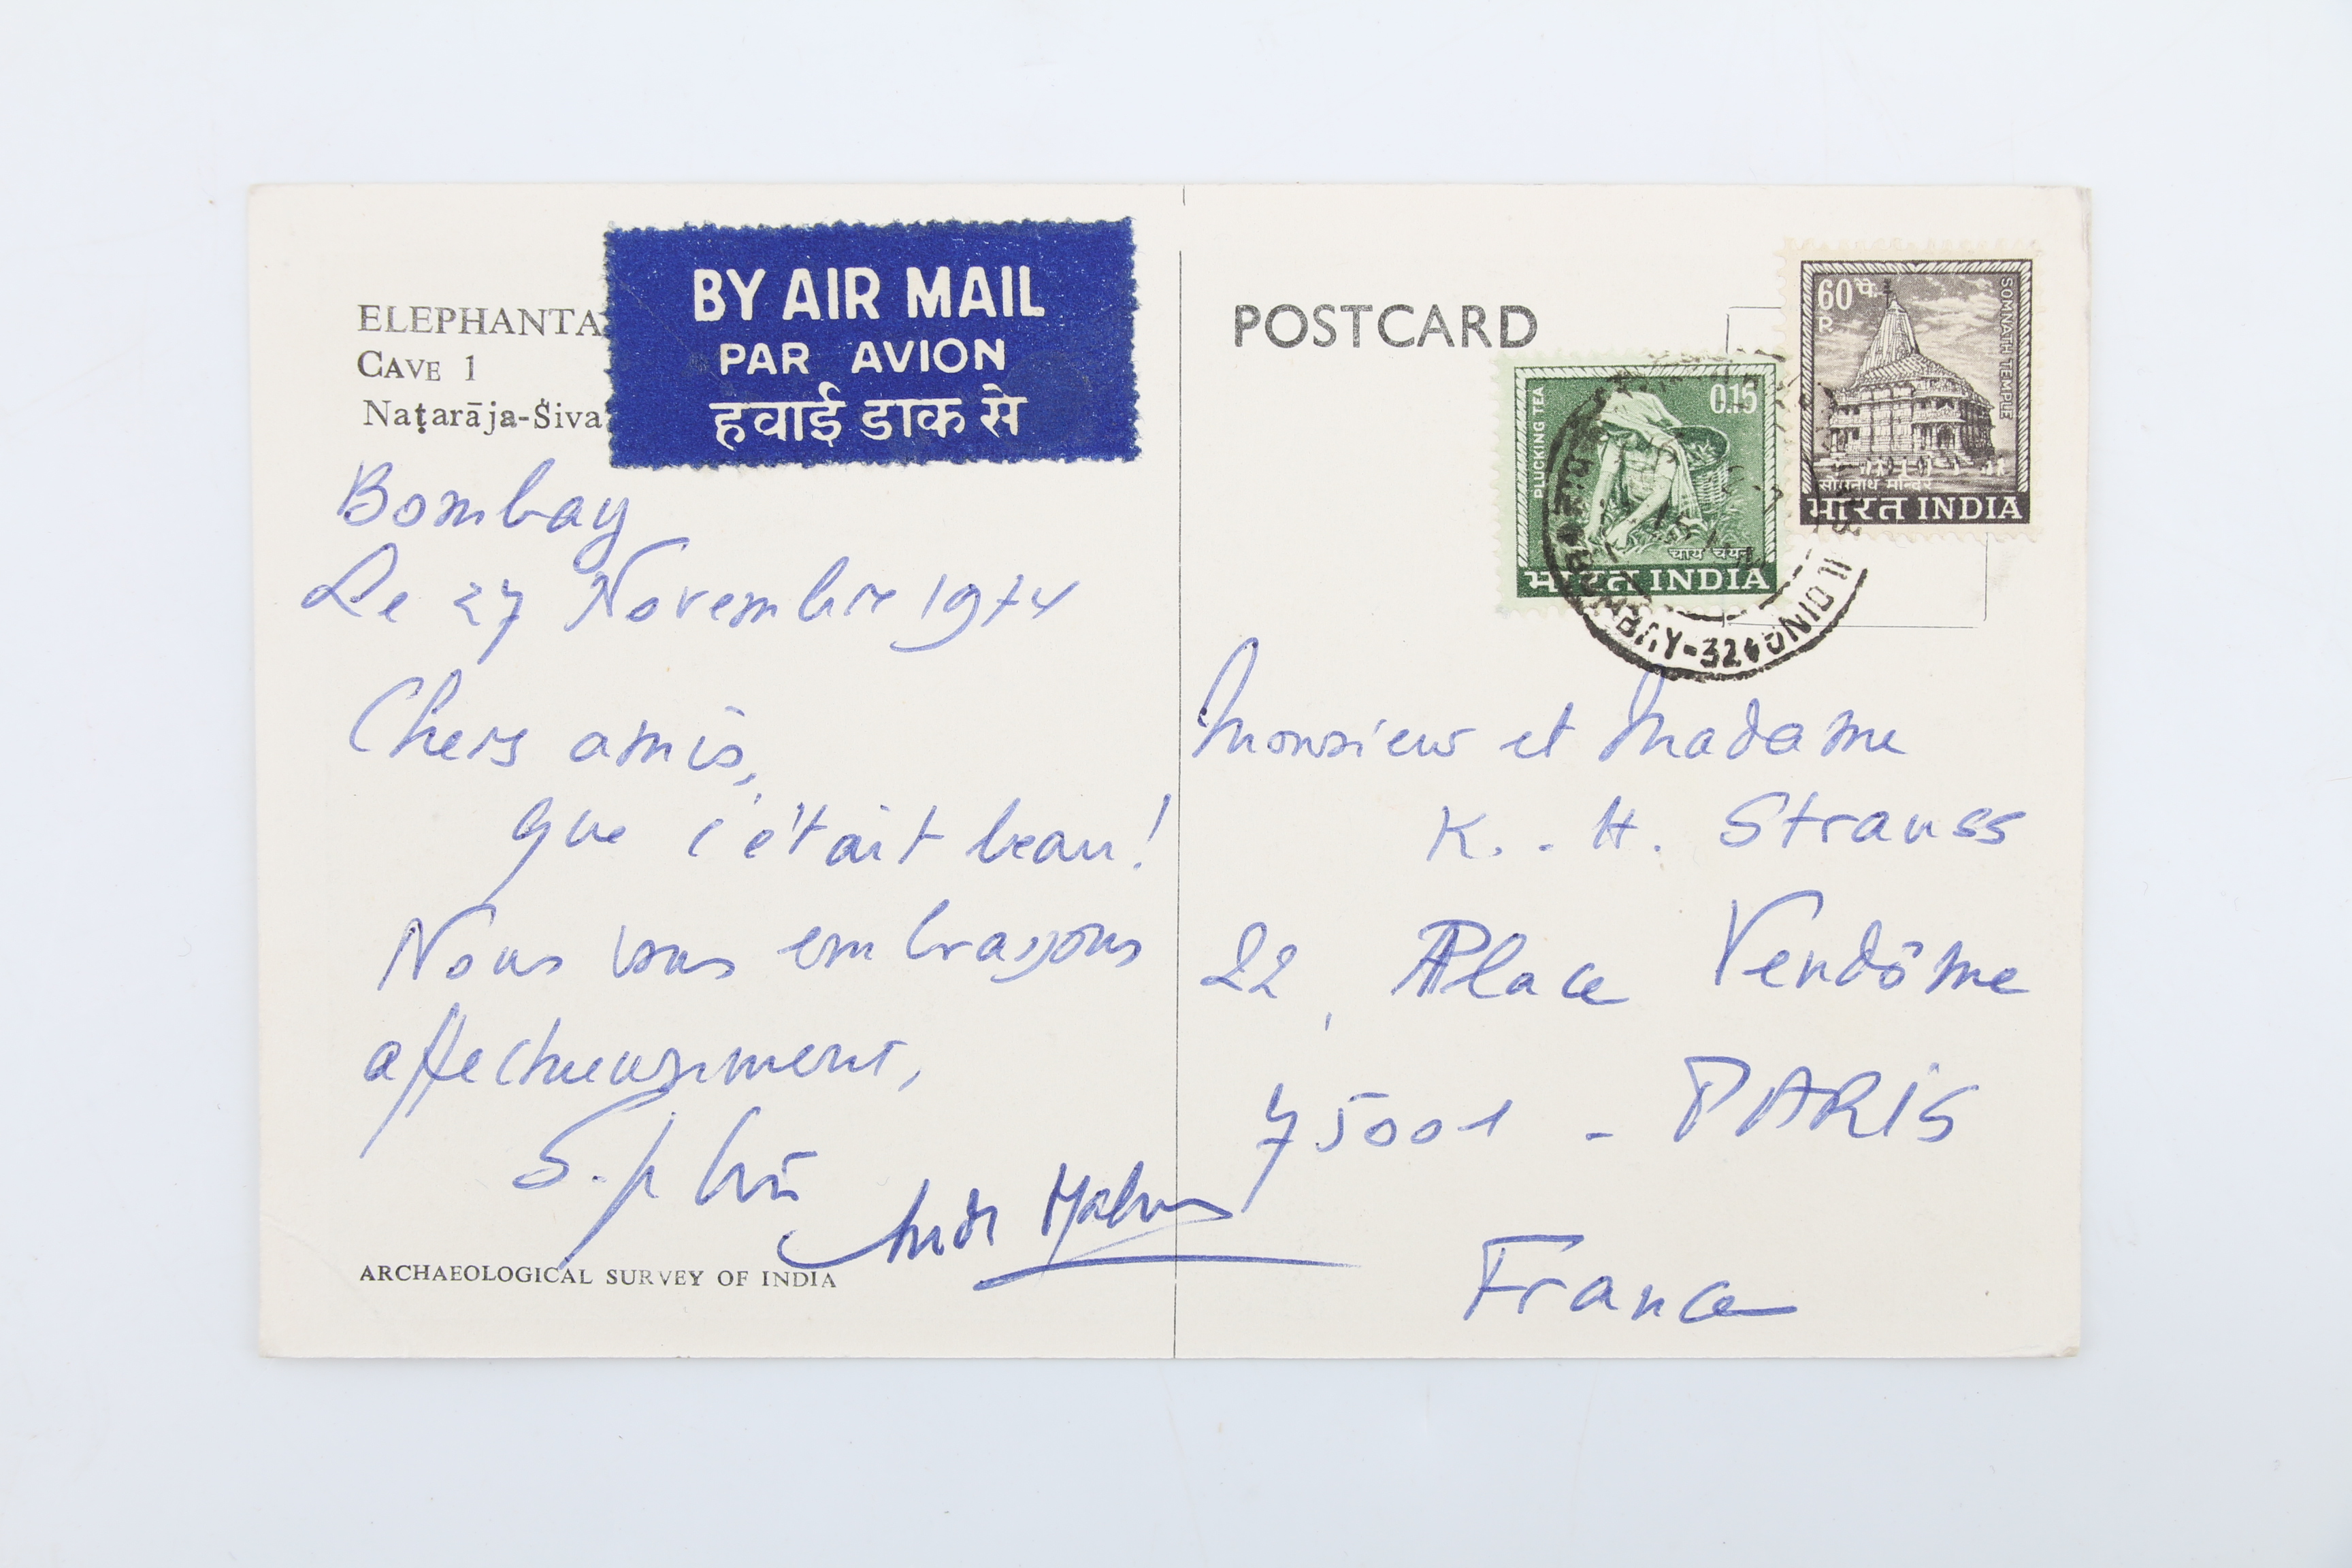 ELEPHANTA
CAVE 1
Naṭarāja-Śiva
BY AIR MAIL
PAR AVION
हवाई डाक से
Bombay
Le 27 Novembre 1974
Chers amis,
que c'était beau!
Nous vous embrassons
affectueusement,
ARCHAEOLOGICAL SURVEY OF INDIA
POSTCARD
PLUCKING TEA
0.15
चाय चयन
भारत INDIA
60 पै.
P.
SOMNATH TEMPLE
सोमनाथ मन्दिर
भारत INDIA
Monsieur et Madame
K. . H. Strauss
22, Place Vendôme
75001 - PARIS
France